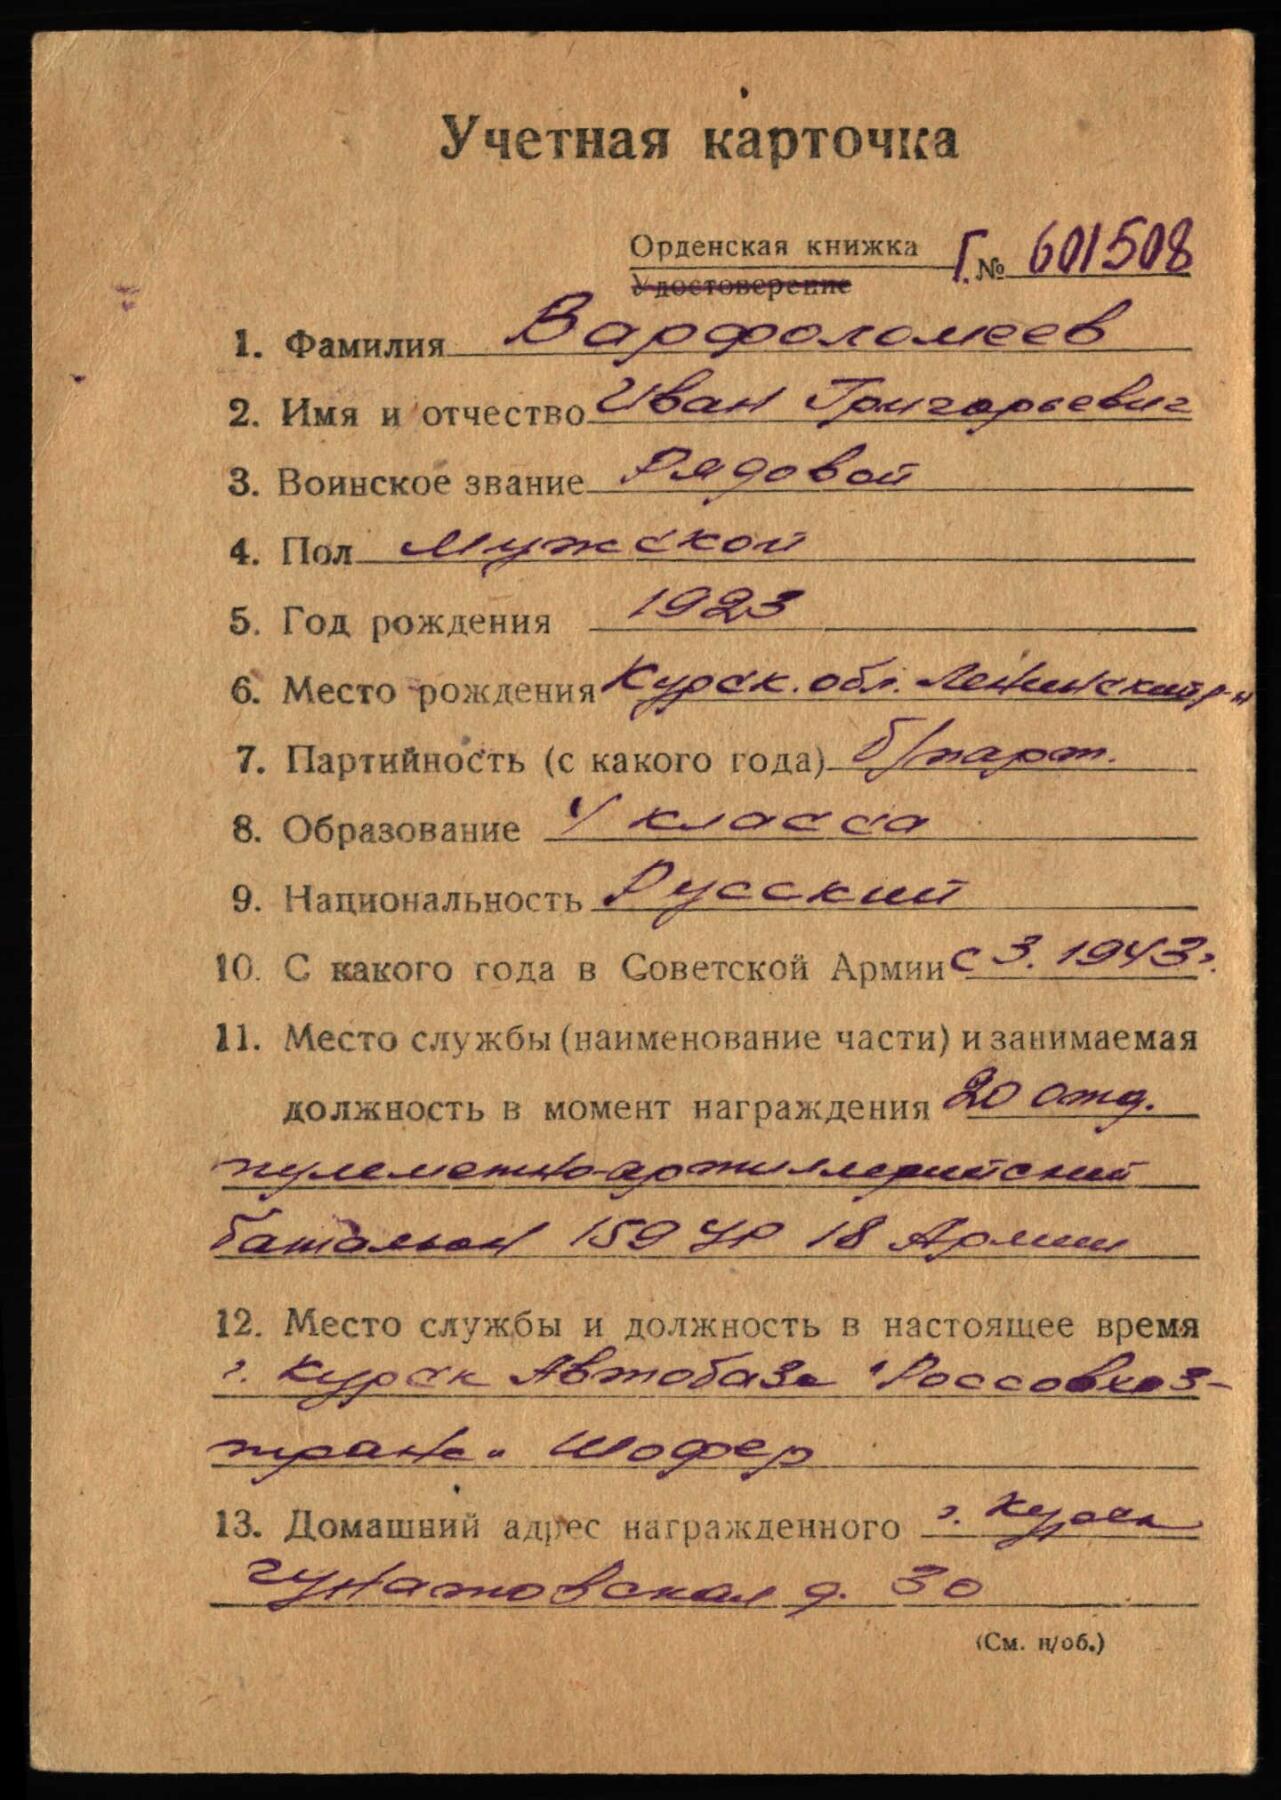 Учетная карточка
Орденская книжка Г. № 601508
Удостоверение
1. Фамилия Варфоломеев
2. Имя и отчество Иван Григорьевич
3. Воинское звание Рядовой
4. Пол Мужской
5. Год рождения 1923
6. Место рождения Курск. обл. Ленинский р-н
7. Партийность (с какого года) б/парт.
8. Образование 4 класса
9. Национальность Русский
10. С какого года в Советской Армии с 3. 1943 г.
11. Место службы (наименование части) и занимаемая
должность в момент награждения 20 отд.
пулеметно-артиллерийский
батальон 159 УР 18 Армии
12. Место службы и должность в настоящее время
г. Курск Автобаза "Россовхоз-
транс" Шофер
13. Домашний адрес награжденного г. Курск
д. 30
(См. н/об.)